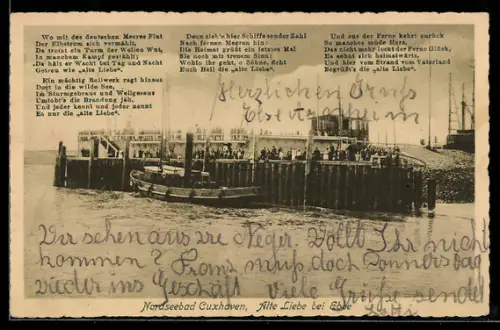 Wo mit des deutschen Meeres Flut
Der Elbstrom sich vermählt,
Da trotzt ein Turm der Wellen Wut,
In manchem Kampf gestählt;
Da hält er Wacht bei Tag und Nacht
Getreu wie „alte Liebe“.
Ein mächtig Bollwerk ragt hinaus
Dort in die wilde See,
Im Sturmgebraus und Wellgesaus
Umtobt's die Brandung jäh,
Und jeder kennt und jeder nennt
Es nur die „Alte Liebe“.
Denn zieh'n hier Schiffe sonder Zahl
Nach fernen Meeren hin:
Die Heimat grüßt ein letztes Mal
Sie noch mit treuem Sinn;
Wohin ihr geht, o Söhne, fleht
Euch Heil die „alte Liebe“.
Und aus der Ferne kehrt zurück
So manches müde Herz,
Das nicht mehr lockt der Ferne Glück,
Es sehnt sich heimatwärts.
Und hier vom Strand vom Vaterland
Begrüßt's die „alte Liebe“.
Herzlichen Gruß
Wir sehen aus wie Neger. Wollt Ihr nicht
kommen? Franz muß doch Donnerstag
wieder ins Geschäft Viele Grüße sendet
Nordseebad Cuxhaven, Alte Liebe bei Ebbe